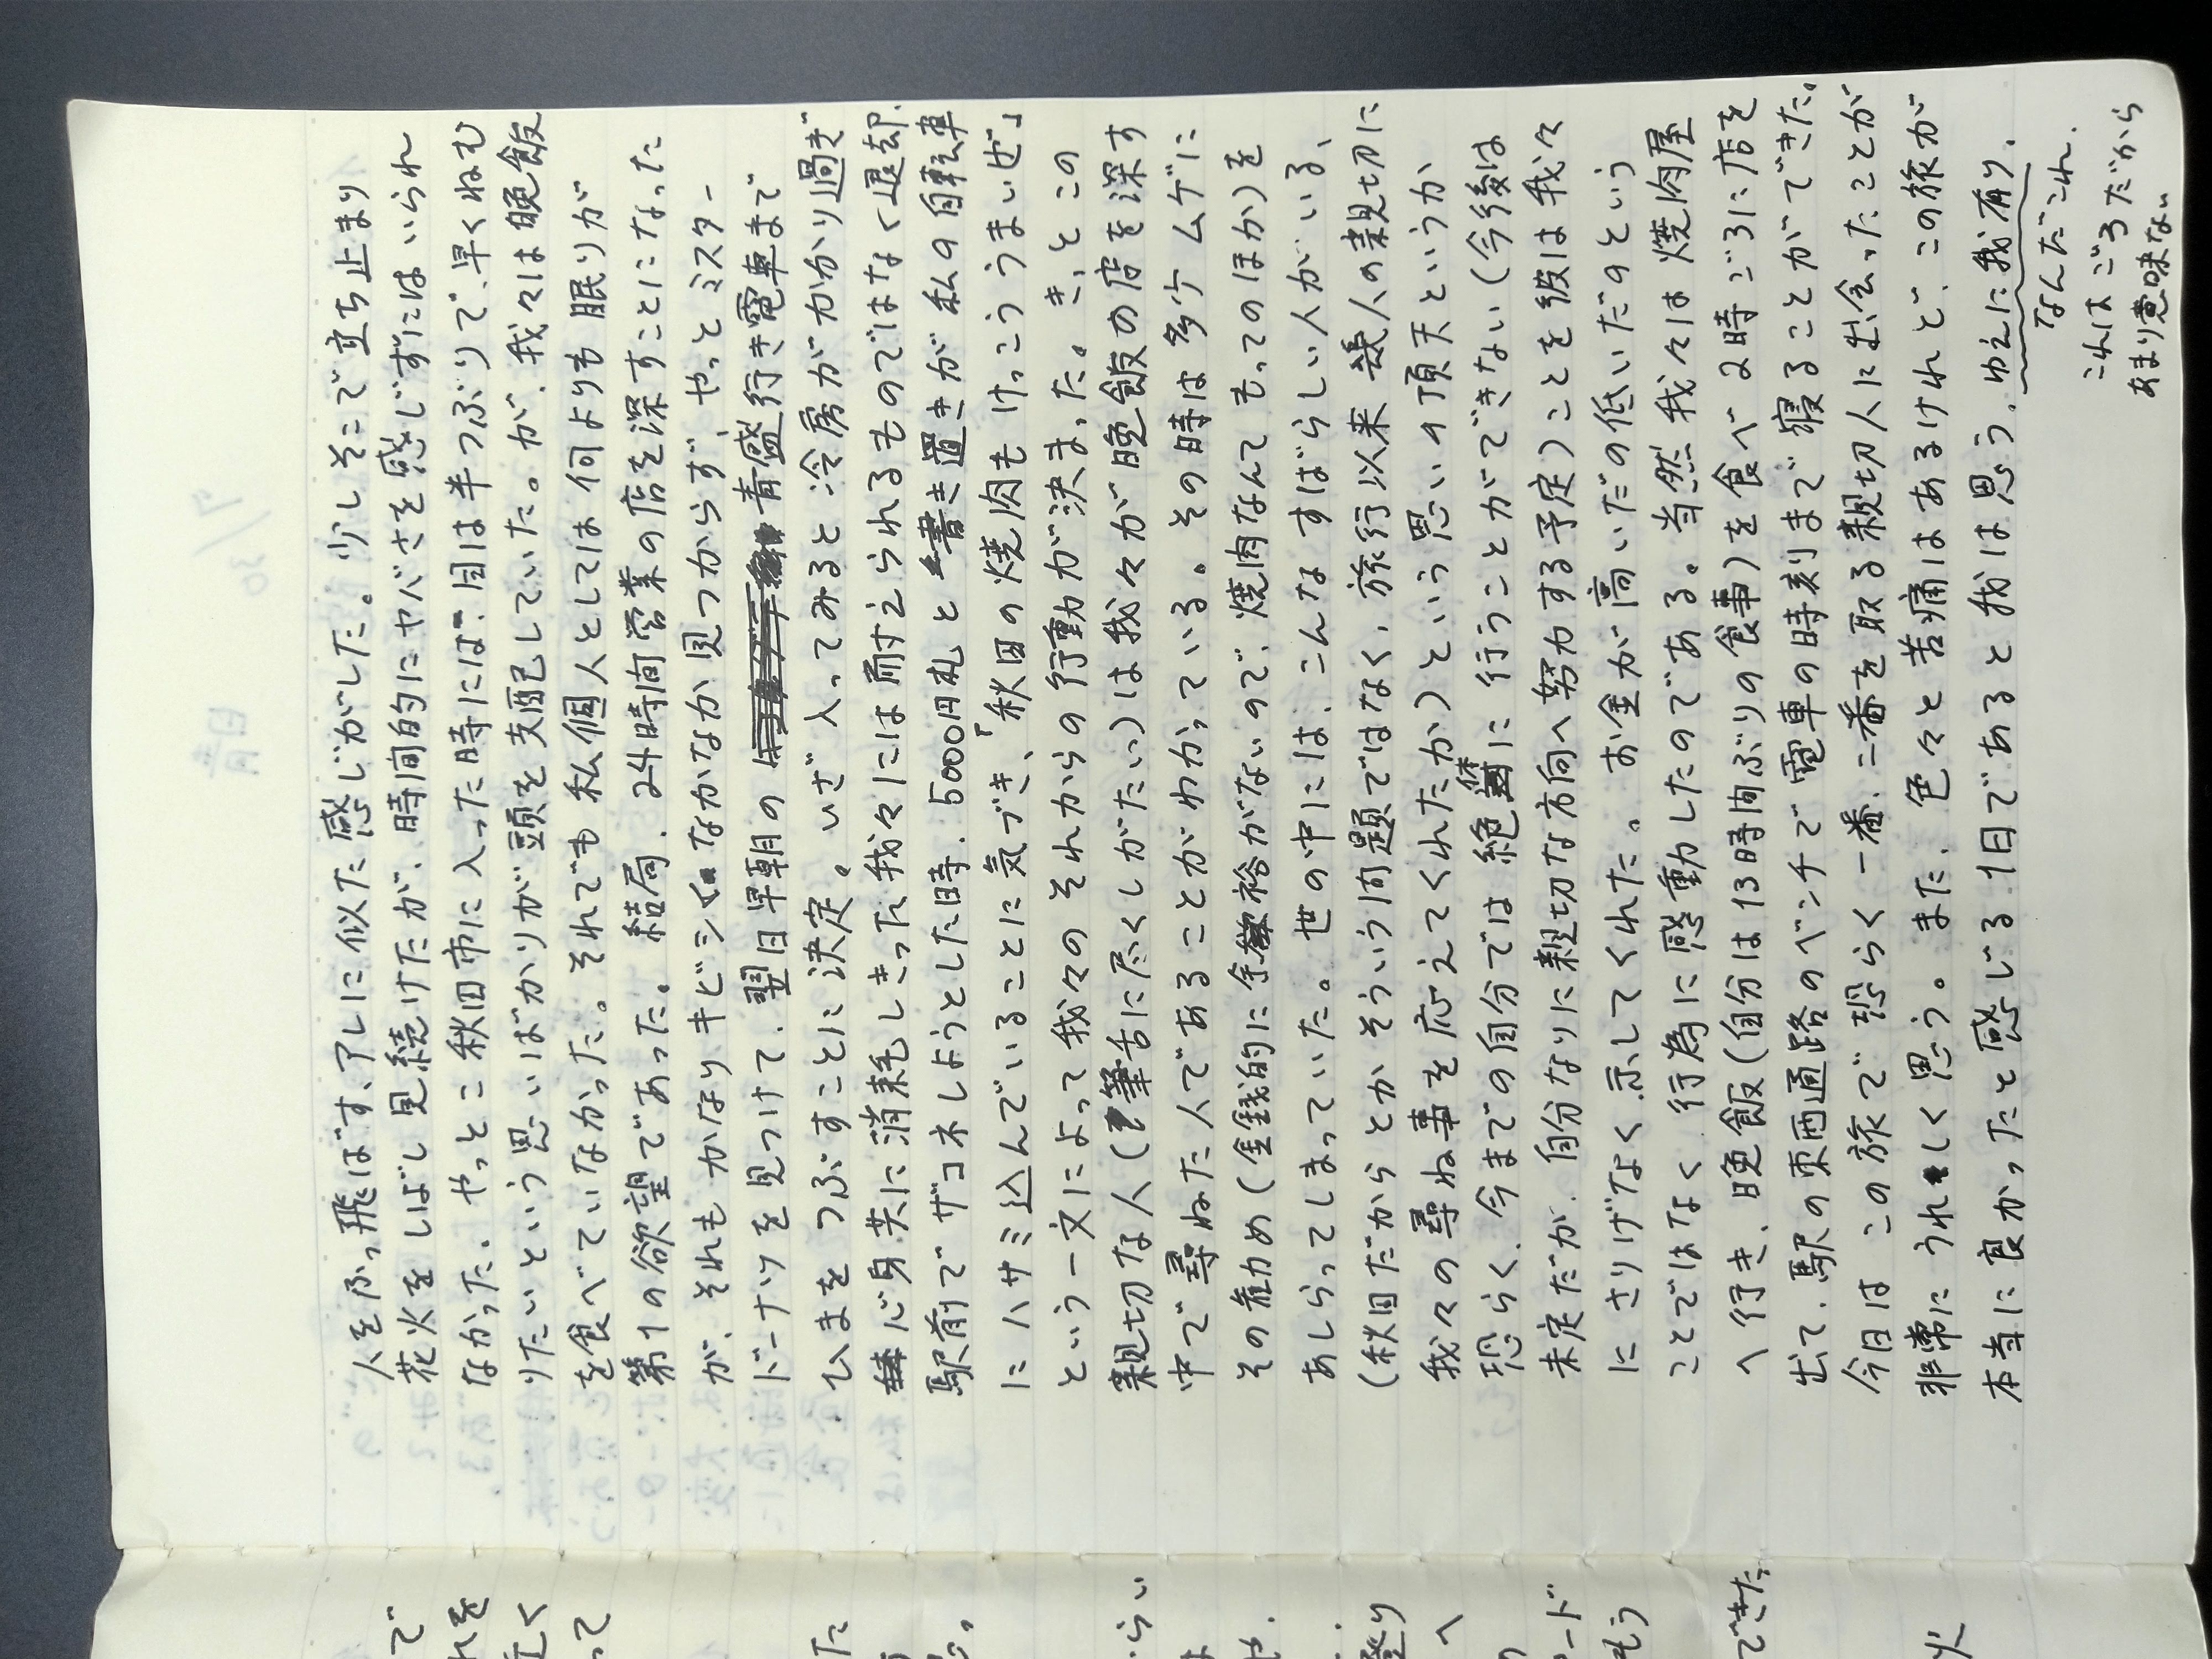 人をふっ飛ばす、アレに似た感じがした。少しそこで立ち止まり
花火をしばし見続けたが、時間的にヤバさを感じずにはいられ
なかった。やっとこ秋田市に入った時には、目は半つぶりで、早くねむ
りたいという思いばかりが頭を支配していた。が、我々は晩飯
を食べていなかった。それでも私個人としては何よりも眠りが
第1の欲望であった。結局、24時間営業の店を深すことになった
が、それもかなりキビシくなかなか見つからず、やっとミスター
ドーナツを見つけて、翌日早朝の青盛行き電車まで
ひまをつぶすことに決定。いざ入ってみると冷房がかかり過ぎ
心身共に消耗しきった我々には耐えられるものではなく退却、
駅前でザコネしようとした時、5000円札と書き置きが私の自転車
にハサミ込んでいることに気づき、「秋田の焼肉もけっこううまいぜ」
という一文によって我々のそれからの行動が決まった。きっとこの
親切な人(筆舌に尽くしがたい)は我々が晩飯の店を深す
中で尋ねた人であることがわかっている。その時は多少ムゲに
その為め(金銭的に余裕がないので、焼肉なんてもってのほか)を
あしらってしまっていた。世の中には、こんなすばらしい人がいる、
(秋田だからとかそういう問題ではなく、旅行以来幾人の親切に
我々の尋ね事を応えてくれたか)という思いの頂天というか
恐らく、今までの自分では絶体に行うことができない(今後は
未定だが、自分なりに親切な方向へ努力する予定)ことを彼は我々
にさりげなく示してくれた。お金が高いだの低いだのという
ことではなく、行為に感動したのである。当然我々は焼肉屋
へ行き、晩飯(自分は13時間ぶりの食事)を食べ2時ごろに店を
出て、駅の東西通路のベンチで電車の時刻まで寝ることができた。
今日はこの旅で恐らく一番、二番を取る親切人に出会ったことが
非常にうれしく思う。また、色々と苦痛はあるけれど、この旅が
本当に良かったと感じる1日であると我は思う、ゆえに我有り。
なんだこれ、
これはごろだから
あまり意味ない
7/30
晴
で
れを
近く
って
た
らい
登り
へ
ード
もう
できた。
火